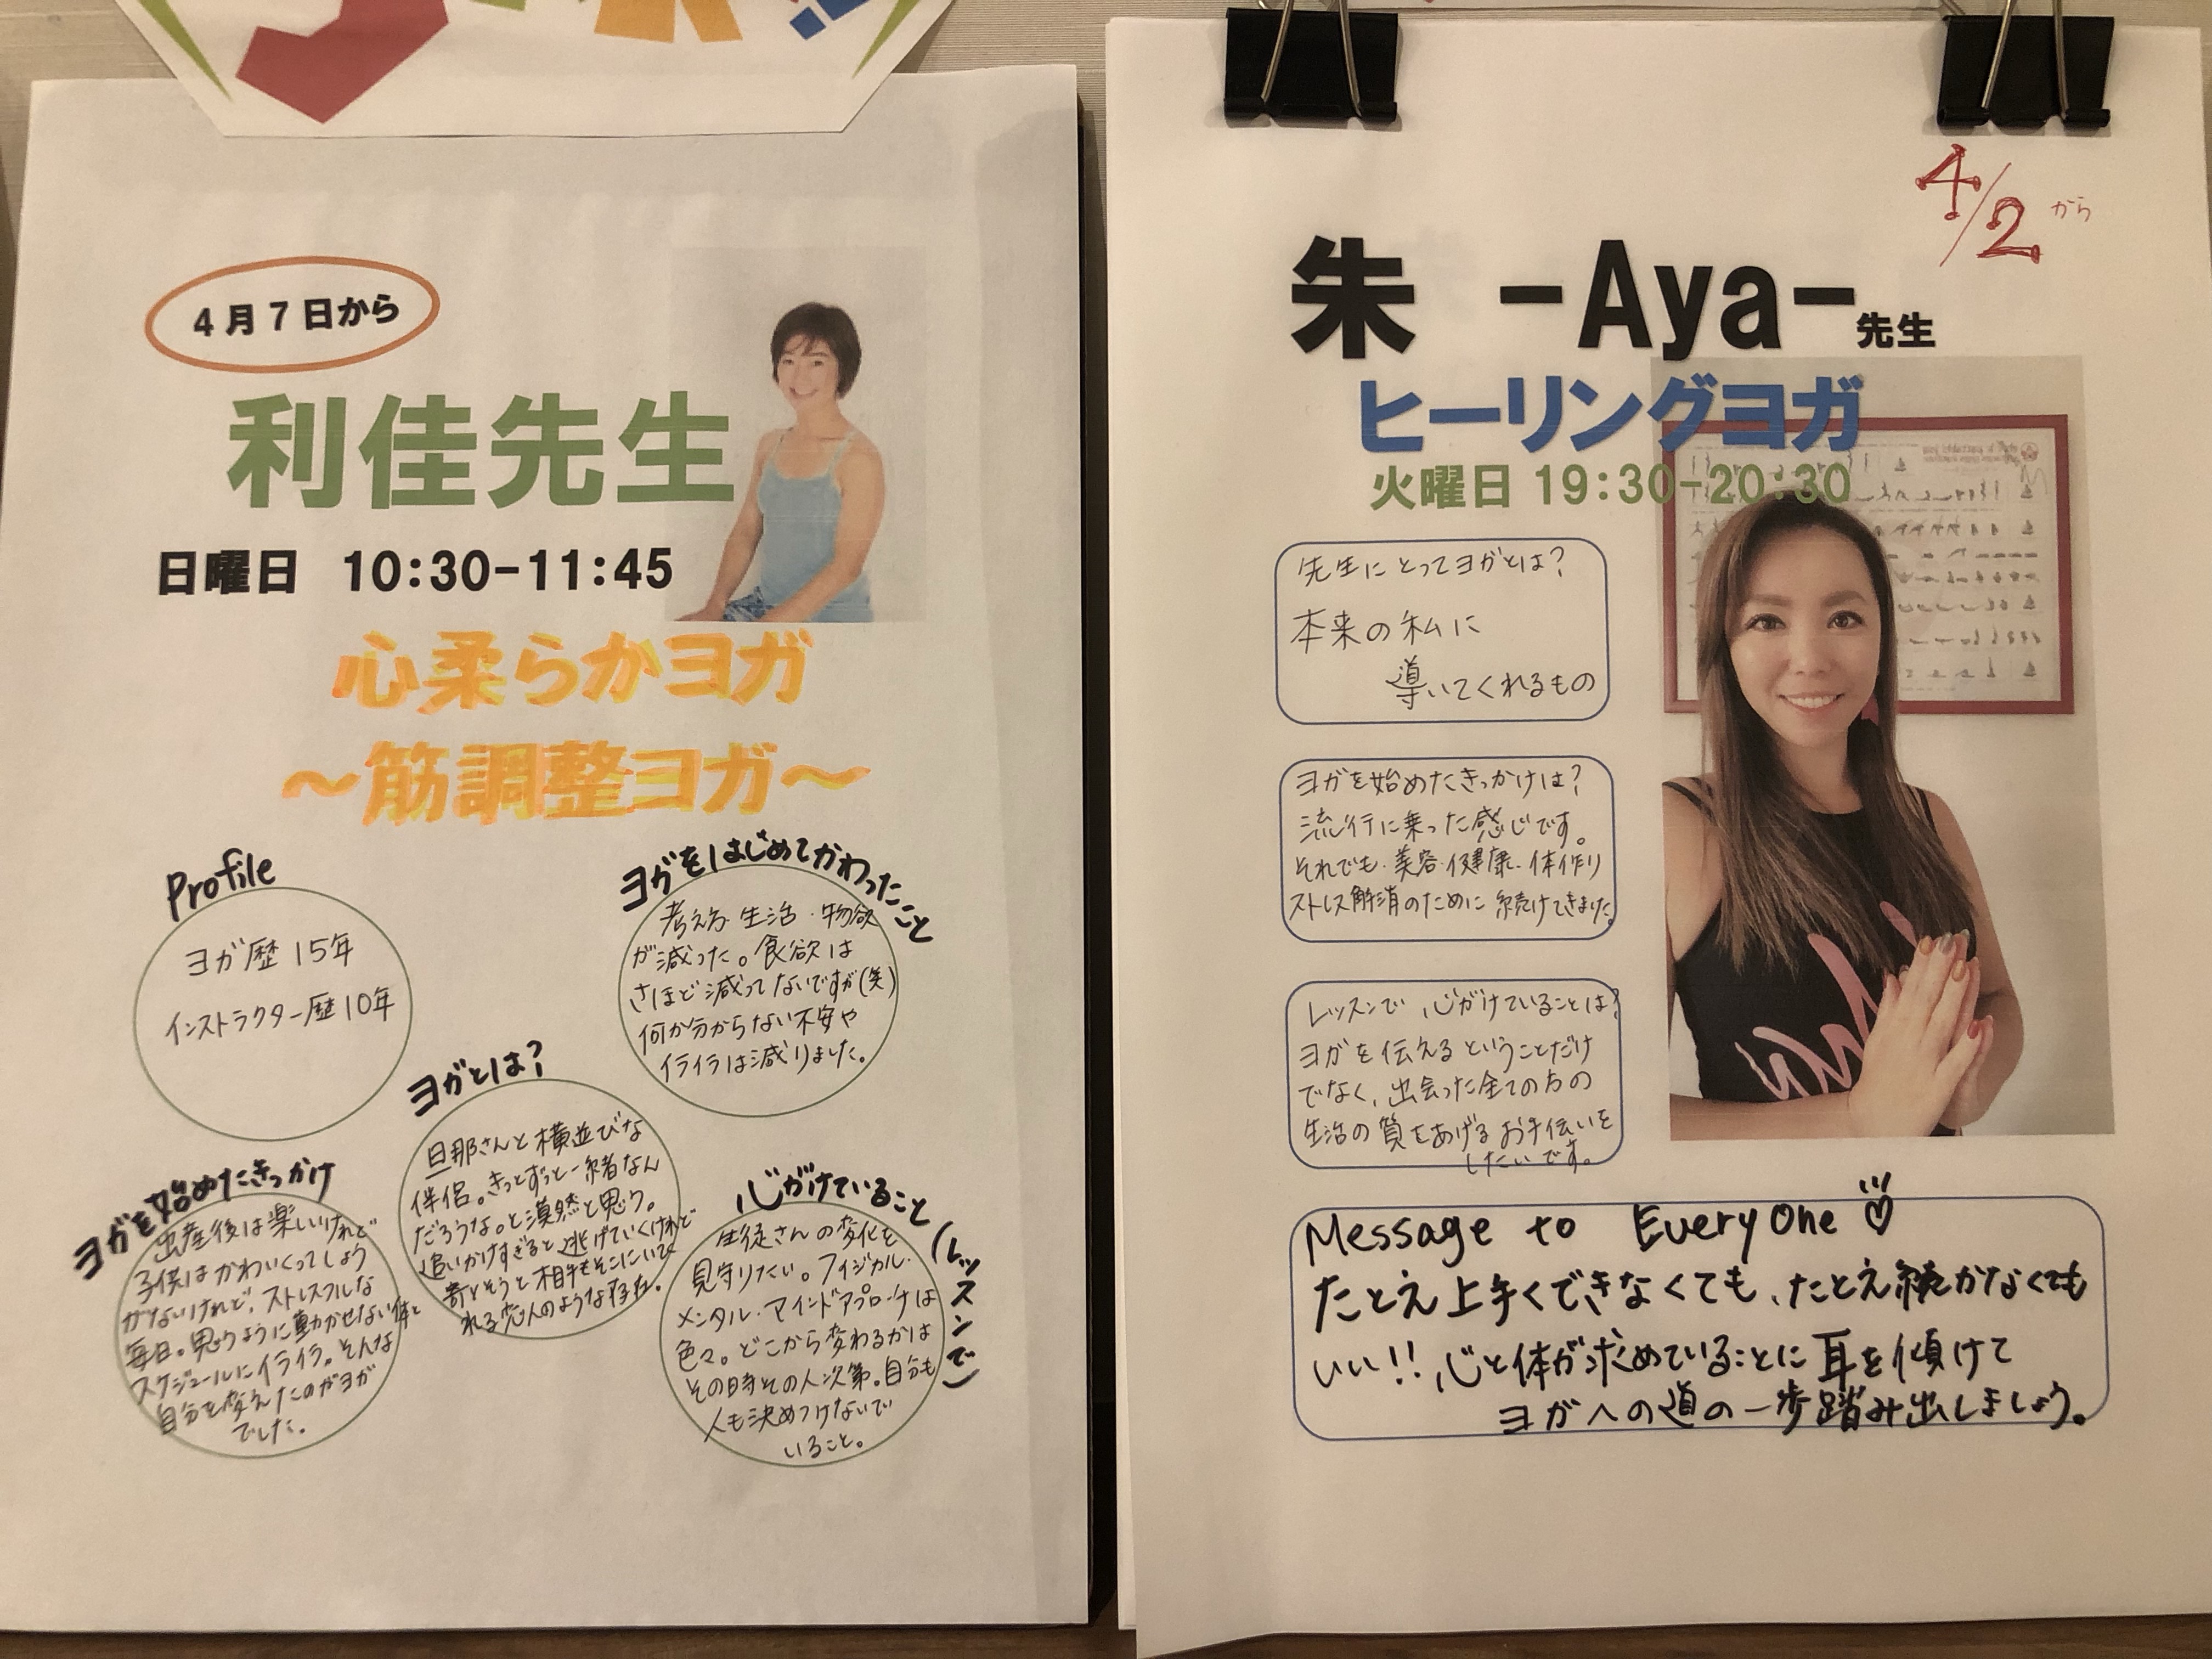 4月7日から
利佳先生
日曜日 10:30-11:45
心柔らかヨガ
～筋調整ヨガ～
Profile
ヨガ歴 15年
インストラクター歴10年
ヨガをはじめてかわったこと
考え方 生活・物欲
が減った。食欲は
さほど減ってないですが(笑)
何か分からない不安や
イライラは減りました。
ヨガとは?
旦那さんと横並びな
伴侶。きっとずっと一緒なん
だろうな。と漠然と思う。
追いかけすぎると逃げていくけれど
寄りそうと相手もそこにいてく
れる恋人のような存在。
ヨガを始めたきっかけ
出産後は楽しいけれど
子供はかわいくってしょう
がないけれど、ストレスフルな
毎日。思うように動かせない体と
スケジュールにイライラ。そんな
自分を変えたのがヨガ
でした。
心がけていること(レッスンで)
生徒さんの変化を
見守りたい。フィジカル・
メンタル・マインドアプローチは
色々。どこから変わるかは
その時その人次第。自分も
人も決めつけないで
いること。
4/2から
朱 -Aya-先生
ヒーリングヨガ
火曜日 19:30-20:30
先生にとってヨガとは?
本来の私に
導いてくれるもの
ヨガを始めたきっかけは?
流行に乗った感じです。
それでも・美容・健康・体作り
ストレス解消のために続けてきました。
レッスンで 心がけていることは?
ヨガを伝えるということだけ
でなく、出会った全ての方の
生活の質をあげるお手伝いを
したいです。
Message to EveryOne
たとえ上手くできなくても、たとえ続かなくても
いい!!心と体が求めていることに耳を傾けて
ヨガへの道の一歩踏み出しましょう。